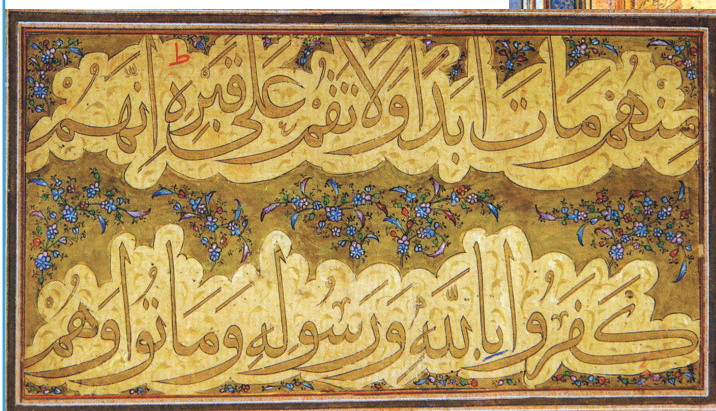 مِنْهُمْ مَاتَ اَبَدًا وَلَا تَقُمْ عَلٰى قَبْرِهٖ ط اِنَّهُمْ
كَفَرُوا بِاللّٰهِ وَرَسُولِهٖ وَمَاتُوا وَهُمْ